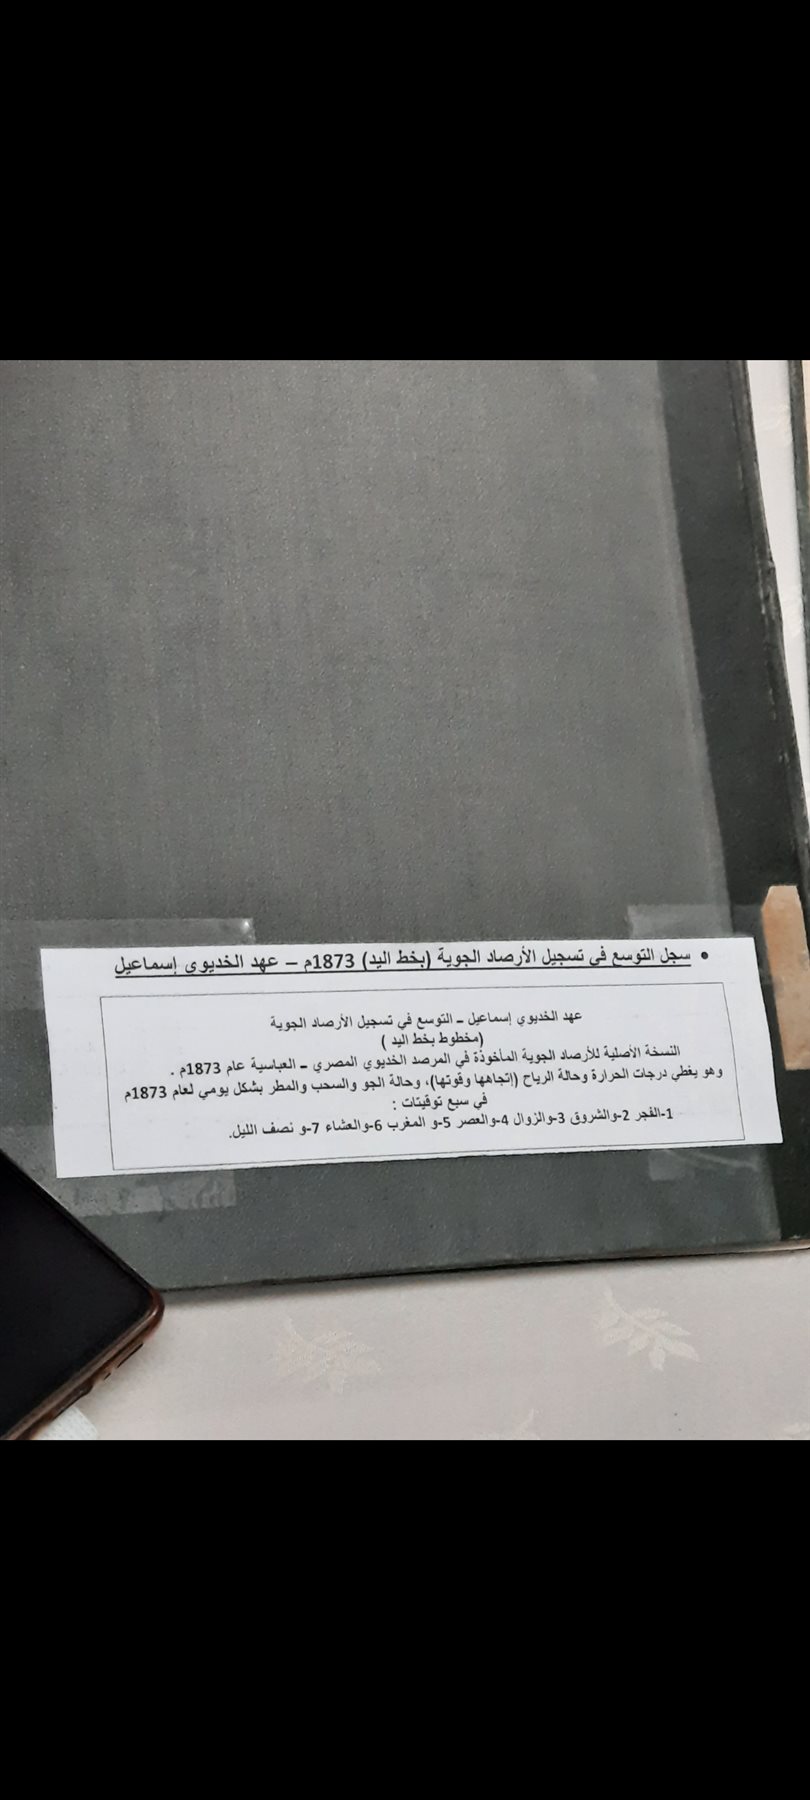 • سجل التوسع في تسجيل الأرصاد الجوية (بخط اليد) 1873م – عهد الخديوي إسماعيل
عهد الخديوي إسماعيل – التوسع في تسجيل الأرصاد الجوية
(مخطوط بخط اليد )
النسخة الأصلية للأرصاد الجوية المأخوذة في المرصد الخديوي المصري – العباسية عام 1873م .
وهو يغطي درجات الحرارة وحالة الرياح (إتجاهها وقوتها)، وحالة الجو والسحب والمطر بشكل يومي لعام 1873م
في سبع توقيتات :
1-الفجر 2-والشروق 3-والزوال 4-والعصر 5-و المغرب 6-والعشاء 7-و نصف الليل.